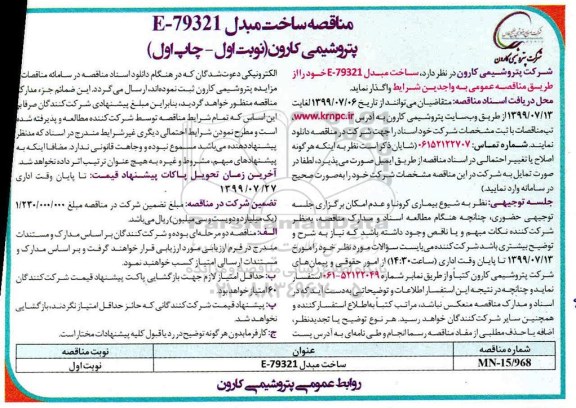 مناقصه ساخت مبدل E-79321
پتروشیمی کارون (نوبت اول - چاپ اول)
شرکت پتروشیمی کارون
شرکت پتروشیمی کارون در نظر دارد، ساخت مبدل E-79321 خود را از
طریق مناقصه عمومی به واجدین شرایط واگذار نماید
محل دریافت اسناد مناقصه: متقاضیان می‌توانند از تاریخ ۱۳۹۹/۰۷/۰۶ لغایت
۱۳۹۹/۰۷/۱۳ از طریق وب‌سایت پتروشیمی کارون به آدرس www.krnpc.ir
تب مناقصات با ثبت مشخصات شرکت خود اسناد را از صفحه مناقصه دانلود
نمایند. شماره تماس: ۰۶۱۵۲۱۲۲۷۰۷ (شایان ذکر است نظر به اینکه هرگونه
اصلاح یا تغییر احتمالی در اسناد مناقصه از طریق ایمیل صورت می‌پذیرد، لطفا در
صورت تمایل به شرکت در این مناقصه مشخصات شرکت خود را به صورت صحیح
در سامانه وارد نمایید)
جلسه توجیهی: نظر به شیوع بیماری کرونا و عدم امکان برگزاری جلسه
توجیهی حضوری، چنانچه هنگام مطالعه اسناد و مدارک مناقصه، به نظر
شرکت کننده نکات مبهم و یا ناقص وجود داشته باشد که نیاز به شرح و
توضیح بیشتری باشد شرکت کننده می‌بایست سؤالات مورد نظر خود را مورخ
۱۳۹۹/۰۷/۱۳ تا پایان وقت اداری (ساعت ۱۴:۳۰) از امور حقوقی و پیمان‌های
شرکت پتروشیمی کارون کتباً و از طریق نمابر شماره ۰۶۱-۵۲۱۲۲۰۴۹ استفسار
نماید و چنانچه در نتیجه این استفسار اطلاعات و توضیحاتی باشد که در
اسناد و مدارک مناقصه منعکس نباشد، مراتب کتباً به اطلاع استفسار کننده و
همچنین سایر شرکت کنندگان خواهد رسید. هر نوع توضیح یا تجدیدنظر،
اضافه یا حذف مطلبی از مفاد مناقصه رسما انجام و طی نامه‌ای به آدرس پست
الکترونیکی دعوت‌شدگان که در هنگام دانلود اسناد مناقصه در سامانه مناقصات
مزایده پتروشیمی کارون ثبت نموده‌اند، ارسال می‌گردد. این ضمائم جزء مدارک
مناقصه منظور خواهد گردید، بنابراین مبلغ پیشنهادی شرکت کنندگان صرفا بر
این اساس که تمام شرایط مناقصه توسط شرکت کننده مطالعه و پذیرفته شده
است و مطرح نمودن شرایط احتمالی دیگری غیر شرایط مندرج در اسناد که مدنظر
پیشنهاددهنده می‌باشد ممنوع بوده و وجاهت قانونی ندارد مضافا اینکه به
پیشنهادهای مبهم، مشروط و غیره به هیچ عنوان ترتیب اثر داده نخواهد شد
آخرین زمان تحویل پاکات پیشنهاد قیمت: تا پایان وقت اداری
۱۳۹۹/۰۷/۲۷
تضمین شرکت در مناقصه: مبلغ تضمین شرکت در مناقصه ۱/۲۳۰/۰۰۰/۰۰۰
(یک میلیارد و دویست و سی میلیون) ریال می‌باشد
الف: مناقصه دو مرحله‌ای بوده و شرکت کنندگان بر اساس مدارک و مستندات
مندرج در فرم ارزیابی مورد ارزیابی قرار خواهند گرفت و بر اساس مدارک و
مستندات ارسالی امتیاز کسب خواهند نمود.
ب: حداقل امتیاز لازم جهت بازگشایی پاکت پیشنهاد قیمت شرکت کنندگان
۶۰ امتیاز خواهد بود
پ: پیشنهاد قیمت شرکت کنندگانی که حائز حداقل امتیاز نگردند، بازگشایی
نخواهد شد
ج: کارفرما بدون هر گونه توضیح در رد یا قبول کلیه پیشنهادات مختار است.
شماره مناقصه عنوان نوبت مناقصه
MN-15/968 ساخت مبدل E-79321 نوبت اول
روابط عمومی پتروشیمی کارون